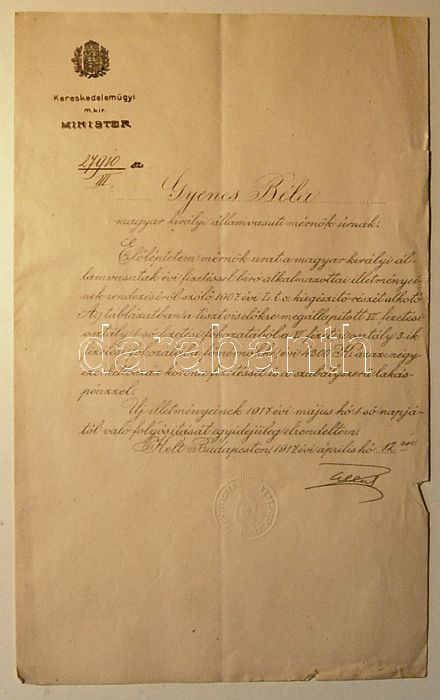 Kereskedelemügyi
m. kir.
MINISTER
27910
VI.
Gyenes Béla
magyar királyi államvasuti mérnök úrnak.
Előléptetem mérnök urat a magyar királyi ál-
lamvasutak évi fizetéssel biró alkalmazottai illetményei-
nek rendezéséről szóló 1907. évi L. t. c. kiegészitő részét alkotó
A) táblázatban a tisztviselőkre megállapitott VI. fizetési
osztály 1-ső fizetési fokozatába
fizetési fokozatába évi 4800 K azaz négy-
ezer korona fizetéssel és a szabályszerű lakás-
pénzzel.
Új illetményeinek 1917 évi május hó 1-ső napjá-
tól való folyósitását egyidejüleg elrendeltem.
Kelt Budapesten, 1917 évi április hó 12-én
darabanth